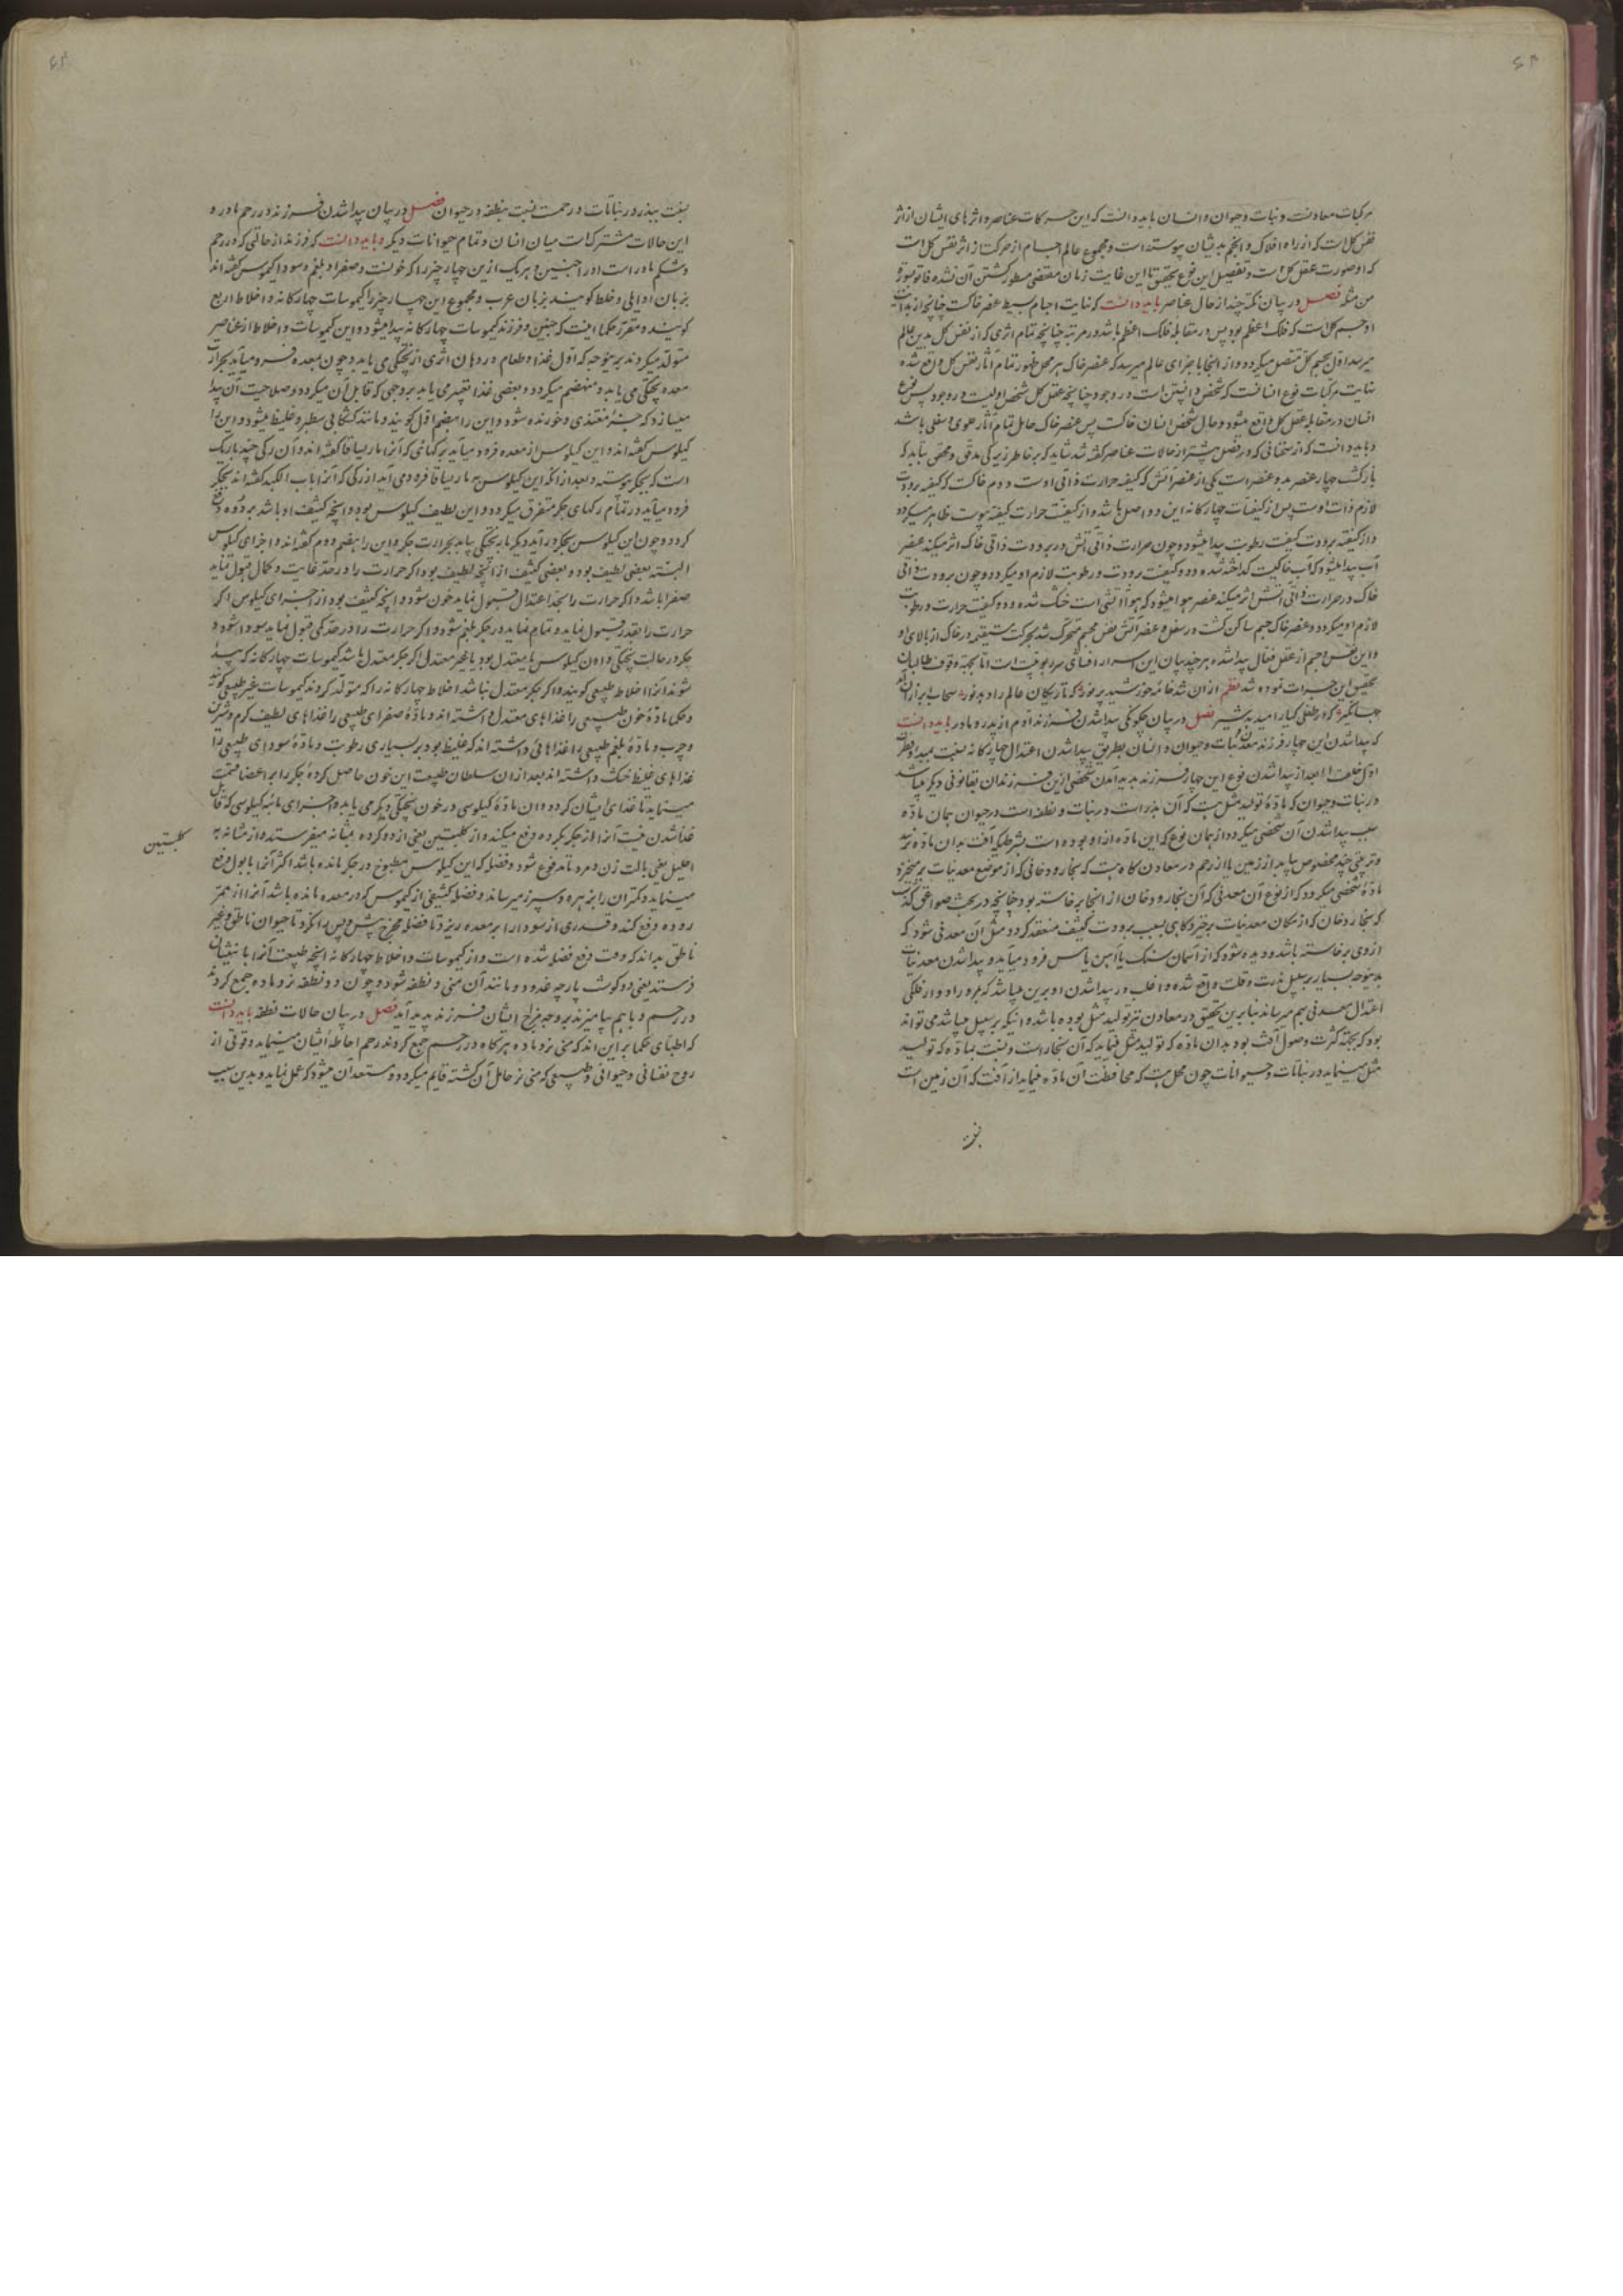 مرکبات معادنست و نبات و حیوان و انسان باید دانست که این حرکات عناصر و اثرهای ایشان از اثر
نفس کل است که از راه افلاک و انجم بدیشان پیوسته است و مجموع عالم اجسام از حرکت از اثر نفس کل است
که او صورت عقل کل است و تفصیل این نوع تحقیق تا این غایت زمان مقتضی مسطور گشتن آن نشده فاتوا بسورة
من مثله فصل در بیان نکته چند از حال عناصر باید دانست که نهایت اجسام بسیط عنصر خاکست چنانچه از بدایت
او جسم کل است که فلک اعظم بود پس در مقابله فلک اعظم باشد در مرتبه چنانچه تمام اثری که از نفس کل بدین عالم
میرسد اول بجسم کل متصل میگردد و از آنجا باجزای عالم میرسد که عنصر خاک هر محل ظهور تمام آثار نفس کل واقع شده
نهایت مرکبات نوع انسانست که شخص واپسین است در وجود چنانچه عقل کل شخص اولیست در وجود پس نوع
انسان در مقابله عقل کل واقع میشود و حال شخص انسان خاکست پس عنصر خاک حامل تمام آثار علوی و سفلی باشد
و باید دانست که از سخنانی که در فصل پیشتر از حالات عناصر گفته شد شاید که بر خاطر زیرکی مدقق و محقق بیاید که
بازگشت چهار عنصر بدو عنصر است یکی از عنصر آتش که کیفیت حرارت ذاتی اوست و دوم خاکست که کیفیت برودت
لازم ذات اوست پس از کیفیات چهارگانه این دو اصل باشد و از کیفیت حرارت کیفیت یبوست ظاهر میگردد
و از کیفیت برودت کیفیت رطوبت پیدا میشود و چون حرارت ذاتی آتش در برودت ذاتی خاک اثر میکند عنصر
آب پیدا میشود که آب خاکیست گداخته شده و دو کیفیت برودت و رطوبت لازم او میگردد و چون برودت ذاتی
خاک در حرارت ذاتی آتش اثر میکند عنصر هوا میشود که هوا آتشی است خنک شده و دو کیفیت حرارت و رطوبت
لازم او میگردد و عنصر خاک جسم ساکن گشت در سفل و عنصر آتش نفس مجسم متحرک شد بحرکت مستقیم در خاک از بالای او
و این نفس و جسم از عقل فعال پیدا شده هر چند بیان این اسرار افشای سر ربوبیت است اما بجهة وقوف طالبان
تحقیق این جرات نموده شد نظم از آن شد خانه خورشید پر نور که تاریکان عالم را دهد نور سحاب از بهر آن
جهانگیر که در طفلی گیا را میدهد شیر فصل در بیان چگونگی پیدا شدن فرزند آدم از پدر و مادر باید دانست
که پیدا شدن این چهار فرزند معدن و نبات و حیوان و انسان بطریق پیدا شدن اعتدال چهارگانه نسبت بمبدا و نظر
اول خلقت اما بعد از پیدا شدن نوع این چهار فرزند پدید آمدن شخص ازین فرزندان بقانونی دیگر میباشد
در نبات و حیوان که مادهٔ تولید مثل هست که آن بذر است در نبات و نطفه است در حیوان همان ماده
سبب پیدا شدن آن شخصی میگردد از همان نوع که این ماده از او بوده است بشرط آنکه آفت بدان ماده نرسد
و تربیتی چند مخصوص بیابد از زمین یا از رحم و در معادن گاه هست که بخار و دخانی که از موضع معدنیات برمیخیزد
مادهٔ شخصی میگردد که از نوع آن معدنی که آن بخار و دخان از آنجا برخاسته بود چنانچه در بحث صواعق گذشت
که بخار و دخان که از مکان معدنیات برخیزد گاهی بسبب برودت کثیف منعقد گردد مثل آن معدنی شود که
از وی برخاسته باشد و دیده شود که از آسمان سنگ یا آهن یا مس فرود میآید و پیدا شدن معدنیات
بدینوجه بسیار بر سبیل ندرت و قلت واقع شده و اغلب در پیدا شدن او برین میباشد که
اعتدال معدنی بهم میرساند بنابرین تحقیق در معادن نیز تولید مثل بوده باشد و آنکه بر سبیل میباشد می تواند
بود که بجهة کثرت وصول آفت بود بدان ماده که تولید مثل نماید که آن بخار است و نسبت بماده که تولید
مثل مینماید در نباتات و حیوانات چون محل هست که محافظت آن ماده مینماید از آفت که آن زمین است
نسبت
نسبت ببذر در نباتات و رحمست نسبت بنطفه در حیوان فصل در بیان پیدا شدن فرزند در رحم مادر و
این حالات مشترک است میان انسان و تمام حیوانات دیگر و باید دانست که فرزند از حالتی که در رحم
و شکم مادر است او را جنین و هر یک ازین چهار چیز را که خونست و صفرا و بلغم و سودا کیموس گفته اند
بزبان اوایلی و خلط گویند بزبان عرب و مجموع این چهار چیز را کیموسات چهارگانه و اخلاط اربع
گویند و مقرر حکما اینست که جنین و فرزند کیموسات چهارگانه پیدا میشود و این کیموسات و اخلاط از عناصر
متولد میگردند برینوجه که اول غذا و طعام در دهان اثری از پختگی می یابد و چون بمعده فرو میآید بحرارت
معده پختگی می یابد و منهضم میگردد و بعضی غذا تغییر می یابد بر وجهی که قابل آن میگردد و صلاحیت آن پیدا
میسازد که جزء مغتذی و خورنده شود و این را هضم اول گویند و مانند کشکابی سطبر و غلیظ میشود و این را
کیلوس گفته اند و این کیلوس از معده فرود میآید برگهای که آنرا ماساریقا گفته اند و آن رگی چند باریک
است که بجگر پیوسته و بعد از آنکه این کیلوس بماساریقا فرود می آید از رگی که آنرا باب الکبد گفته اند بجگر
فرود میآید در تمام رگهای جگر متفرق میگردد و این لطیف کیلوس بود و آنچه کثیف او باشد بروده دفع
گردد و چون این کیلوس بجگر درآید دیگر بار پختگی یابد بحرارت جگر و این را هضم دوم گفته اند و اجزای کیلوس
البته بعضی لطیف بود و بعضی کثیف از آنچه لطیف بود اگر حرارت را در حد غایت و کمال قبول نماید
صفرا باشد و اگر حرارت را بحد اعتدال قبول نماید خون شود و آنچه کثیف بود از اجزای کیلوس اگر
حرارت را بقدر قبول نماید و تمام نماید در جگر بلغم شود و اگر حرارت را در حد کمی قبول نماید سودا شود و
جگر در حالت پختگی دادن کیلوس یا معتدل بود یا غیر معتدل اگر جگر معتدل باشد کیموسات چهارگانه که پیدا
شوند آنرا اخلاط طبیعی گویند و اگر جگر معتدل نباشد اخلاط چهارگانه را که متولد گردند کیموسات غیر طبیعی گویند
و حکما مادهٔ خون طبیعی را غذاهای معتدل داشته اند و مادهٔ صفرای طبیعی را غذاهای لطیف گرم و شیرین
و چرب و مادهٔ بلغم طبیعی را غذاهائی داشته اند که غلیظ بود بر بسیاری رطوبت و مادهٔ سودای طبیعی را
غذاهای غلیظ خشک داشته اند بعد از آن سلطان طبیعت این خون حاصل کردهٔ جگر را بر اعضا قسمت
مینماید تا غذای ایشان گردد و آن مادهٔ کیلوسی در خون پختگی دیگر می یابد و اجزای مائیه کیلوسی که قابل
غذا شدن نیست آنرا از جگر بگرده دفع میکند و از کلیتین یعنی از دو گرده بمثانه میفرستد و از مثانه به
کلیتین
احلیل یعنی بآلت زن و مرد تا مدفوع شود و فضله که این کیلوس مطبوخ در جگر مانده باشد اکثر آنرا با بول دفع
مینماید و کمتر آن را بزهره و سپرز میرساند و فضله کثیفی از کیموس که در معده مانده باشد آنرا از ممر
روده دفع کند و قدری از سودا را بر معده ریزد تا فضله بمخرج پیش و پس را گزد تا حیوان ناطق و غیر
ناطق بداند که وقت دفع فضله شده است و از کیموسات و اخلاط چهارگانه آنچه طبیعت آنرا بانثیان
فرستد یعنی دو گوشت پارچه غدود مانند آن منی و نطفه شود و چون دو نطفه نر و ماده جمع گردند
در رحم و با هم بیامیزند بر وجه مزاج ایشان فرزند پدید آید فصل در بیان حالات نطفه باید دانست
که اطبای حکما بر این اند که منی نر و ماده هرگاه در رحم جمع گردند رحم احاطهٔ ایشان مینماید و قوتی از
روح نفسانی و حیوانی و طبیعی که منی نر حامل آن گشته قایم میگردد و مستعد آن میشود که عمل نماید و بدین سبب